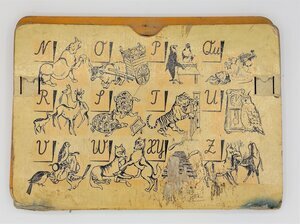 N O P Qu
R S T U
V W XY Z